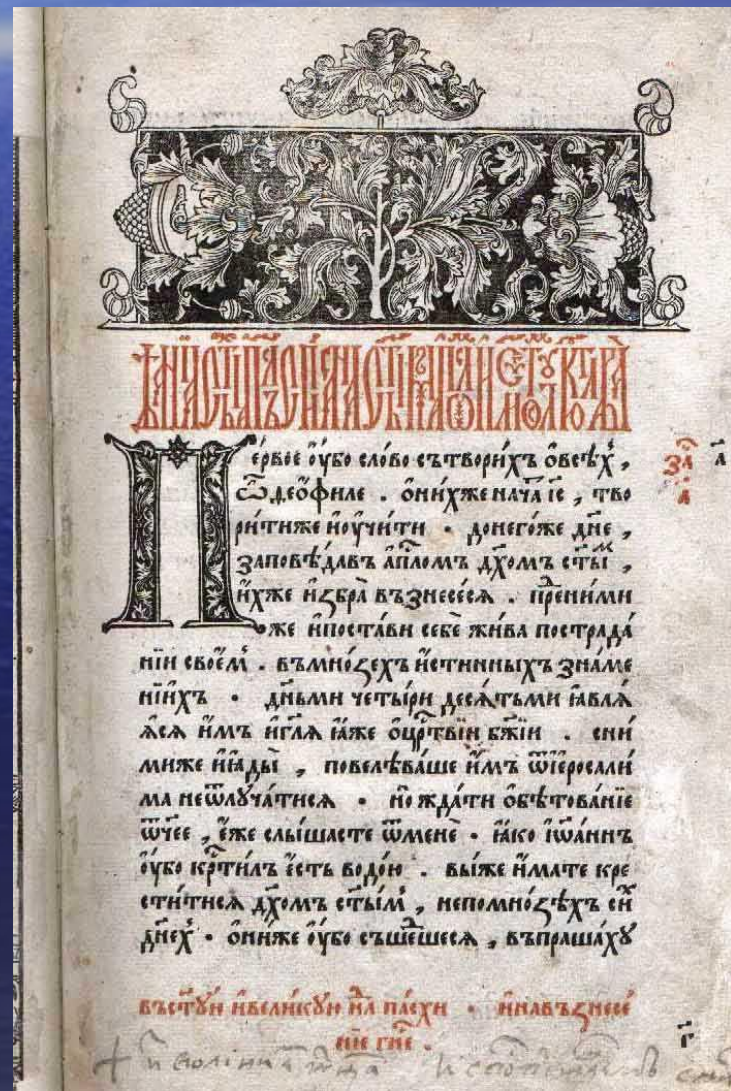 Первое оу҆бо сло́во сътвори́хъ ѻ҆всѣ́хъ,
ѽ,деѻ҆филе . ѻ҆ни́хже нача́ і҆с҃ , тво
ри́тиже ѝоу҆чи́ти • донего́же дн҃е ,
заповѣ́давъ а҆п҃лом дх҃омъ ст҃ы́м ,
и҆́хже и҆ꙁбра̀ възнесе́сѧ . пре́ними
же ѝпоста́ви себѐ жи́ва пострада́
нїи свое́м . въмно́ꙁехъ и҆́стинныхъ зна́ме
нїи́хъ • дн҃ьми четы́ри десѧ́тьми ꙗ҆влѧ́
ѧсѧ и҆̀мъ и҆гл҃ѧ ꙗ҆́же ѻ҆цр҃твїи бж҃їи . сни́
миже и҆ꙗ҆ды̀ , повелѣва́ше и҆̀мъ ѿі҆еросали́
ма неѿлуча́тисѧ • но жда́ти ѻ҆бѣтова́нїе
ѿч҃ее , е҆́же слы́шасте ѿменѐ • ꙗ҆́ко і҆ѡа́ннъ
оу҆́бо кр҃ти́лъ е҆́сть водо́ю . вы́же и҆́мате кре
сти́тисѧ дх҃омъ ст҃ы́м , непомно́ꙁѣхъ си́х
дн҃ех • ѻ҆ни́же оу҆́бо съше́дшесѧ , въпраша́хꙋ
въст҃ꙋю ѝвели́кꙋю нл҃ па́схи • ѝнавъꙁнесе́
нїе гн҃е .
г҃